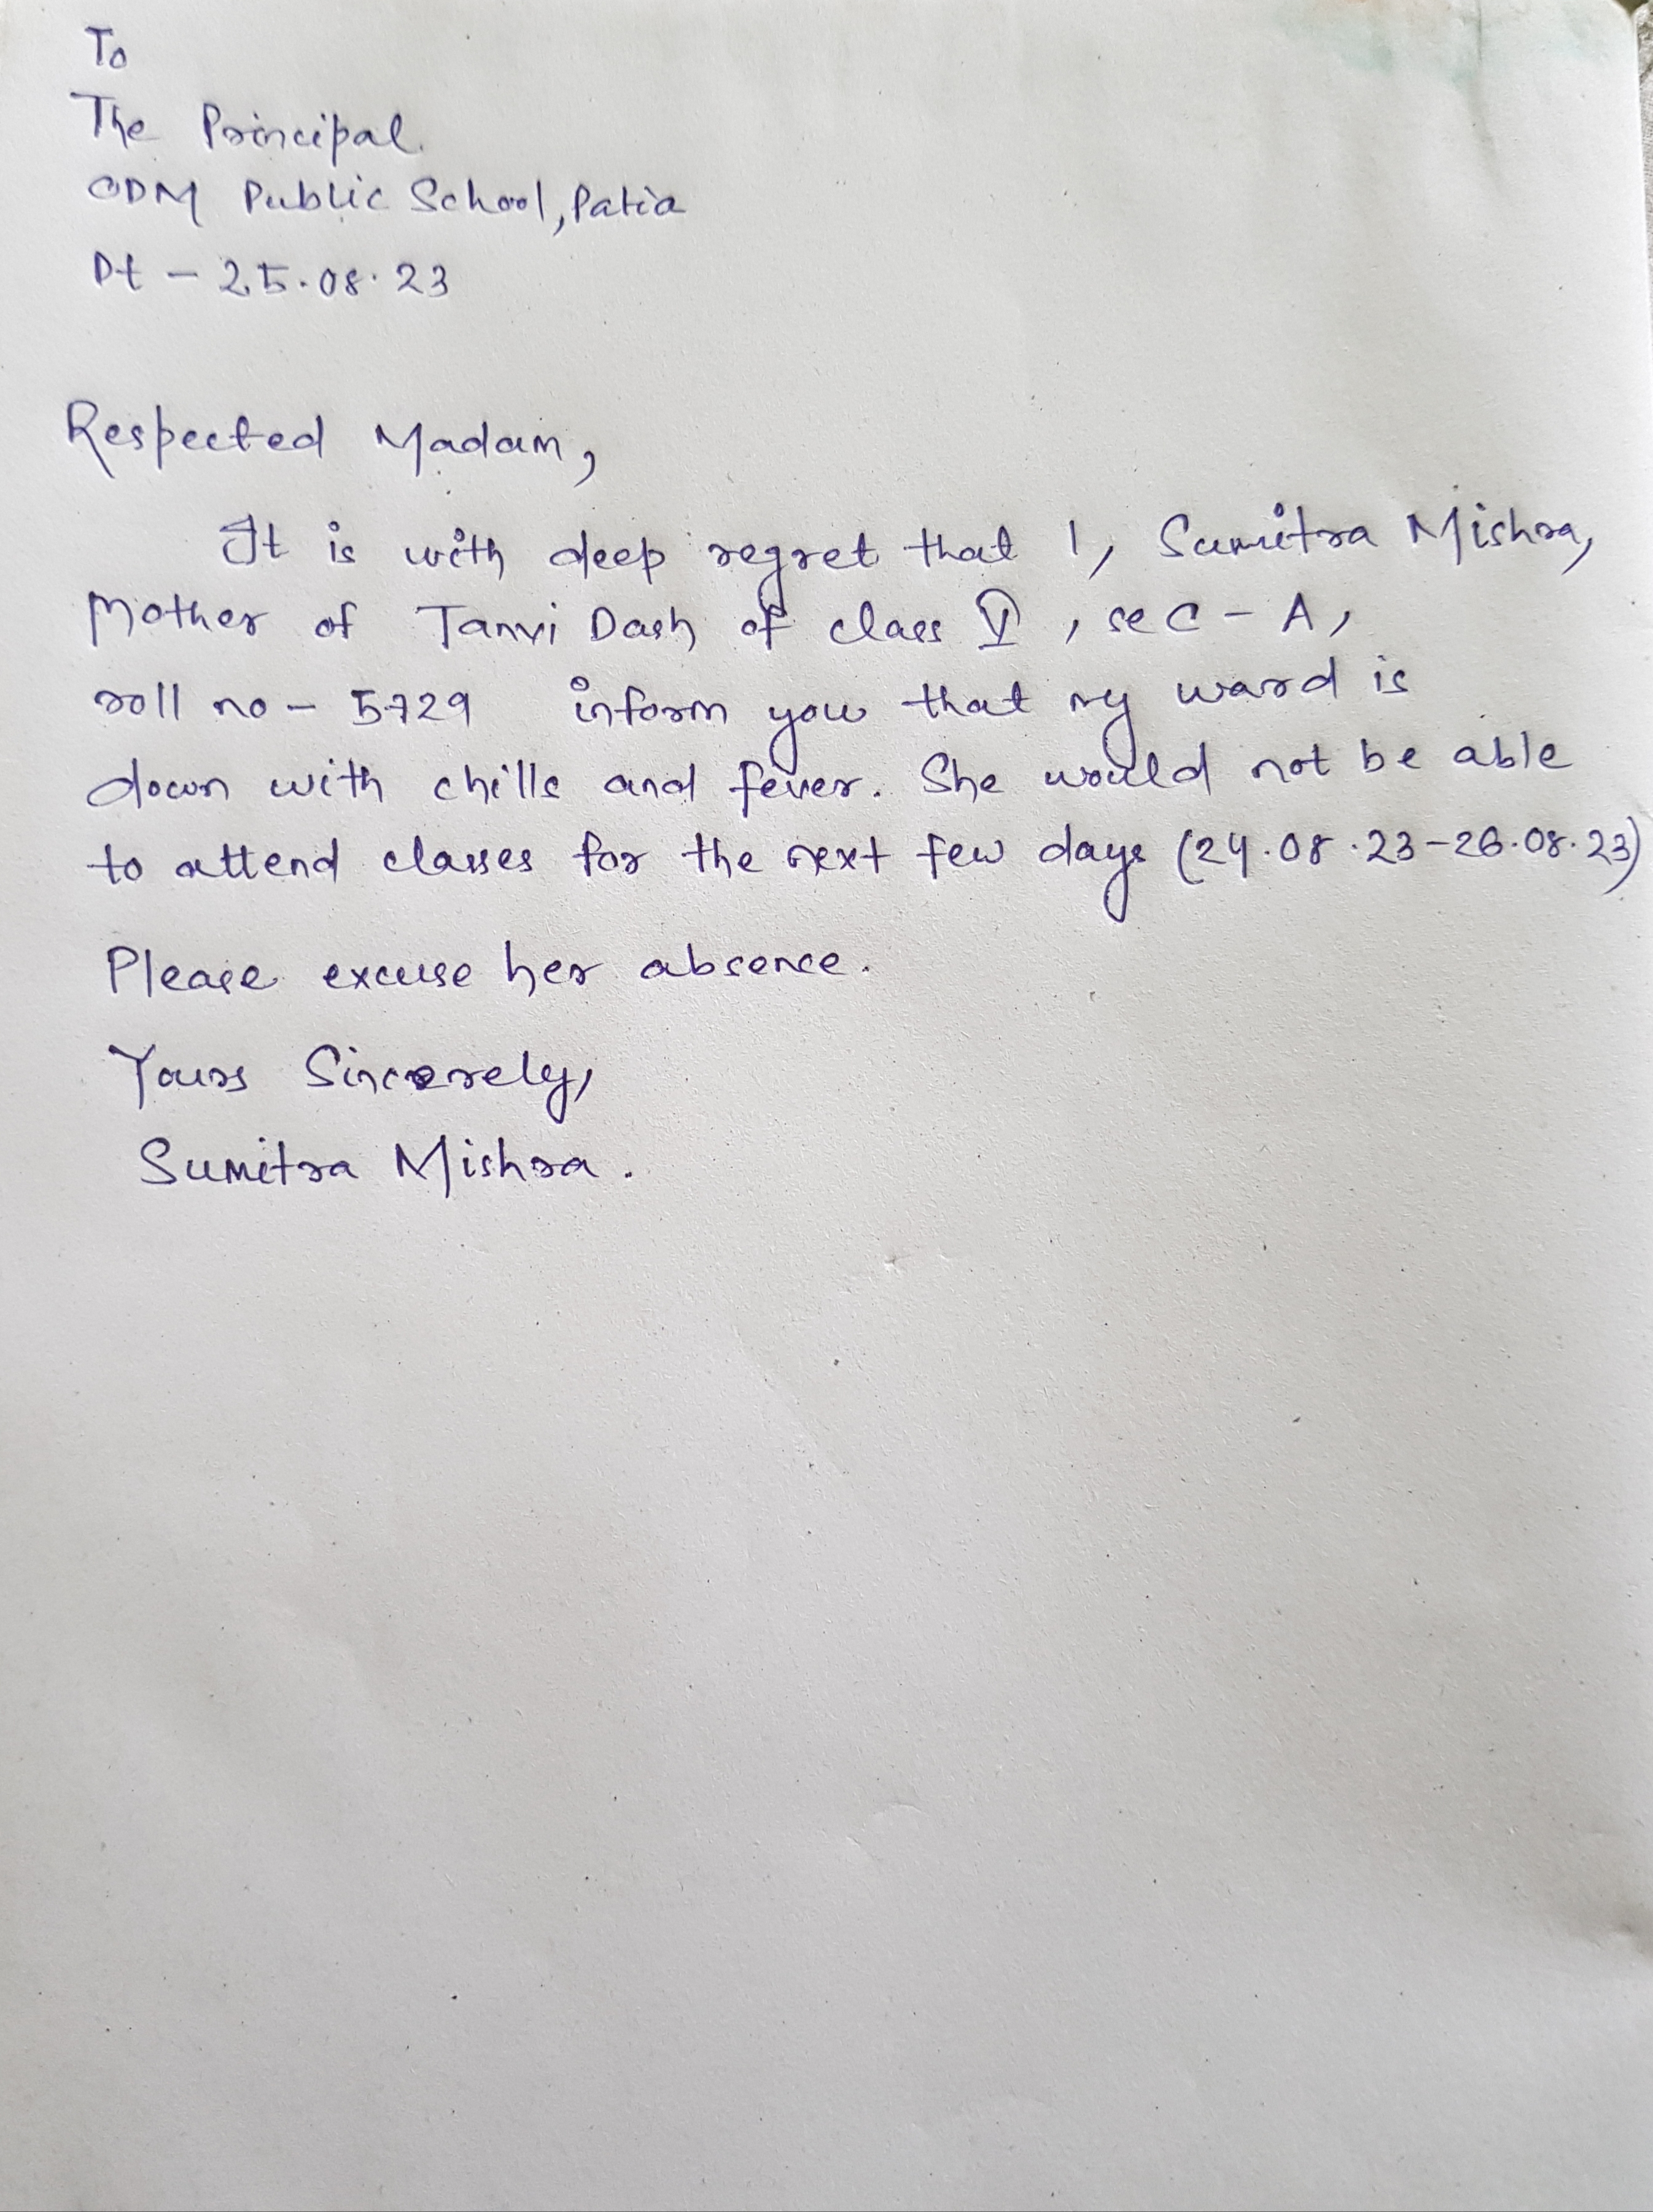 To
The Principal.
ODM Public School, Patia
Dt - 25.08.23
Respected Madam,
It is with deep regret that I, Sumitra Mishra,
Mother of Tanvi Dash of class V, sec - A,
roll no - 5729 inform you that my ward is
down with chills and fever. She would not be able
to attend classes for the next few days (24.08.23-26.08.23)
Please excuse her absence.
Yours Sincerely,
Sumitra Mishra.